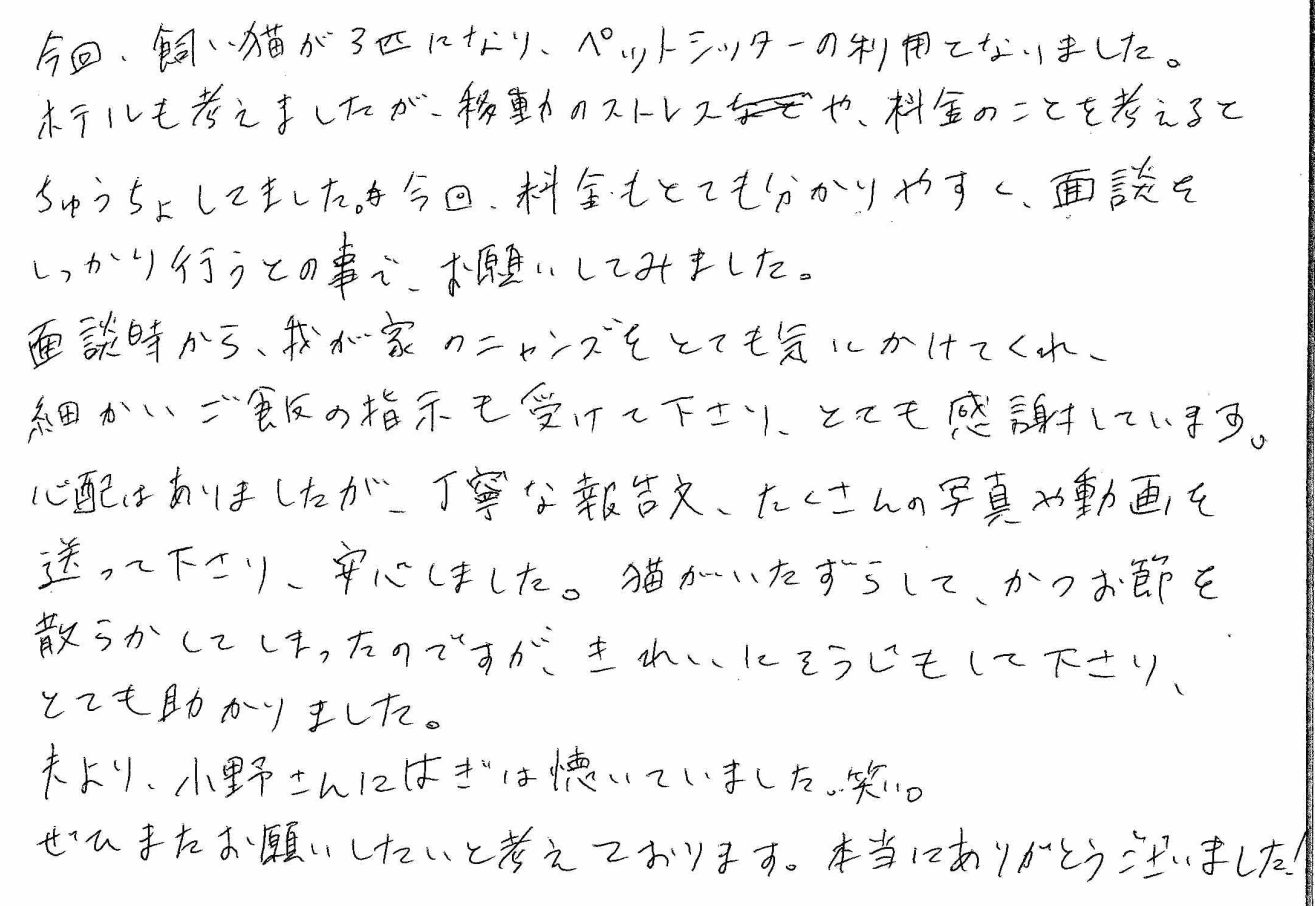 今回、飼い猫が3匹になり、ペットシッターの利用てなりました。
ホテルも考えましたが、移動のストレスや、料金のことを考えると
ちゅうちょしてました。今回、料金もとても分かりやすく、面談を
しっかり行うとの事で、お願いしてみました。
面談時から、我が家のニャンズをとても気にかけてくれ、
細かいご飯の指示も受けて下さり、とても感謝しています。
心配はありましたが、丁寧な報告文、たくさんの写真や動画を
送って下さり、安心しました。猫がいたずらして、かつお節を
散らかしてしまったのですが、きれいにそうじもして下さり、
とても助かりました。
夫より、小野さんにはぎは懐いていました。笑い。
ぜひまたお願いしたいと考えております。本当にありがとうございました!